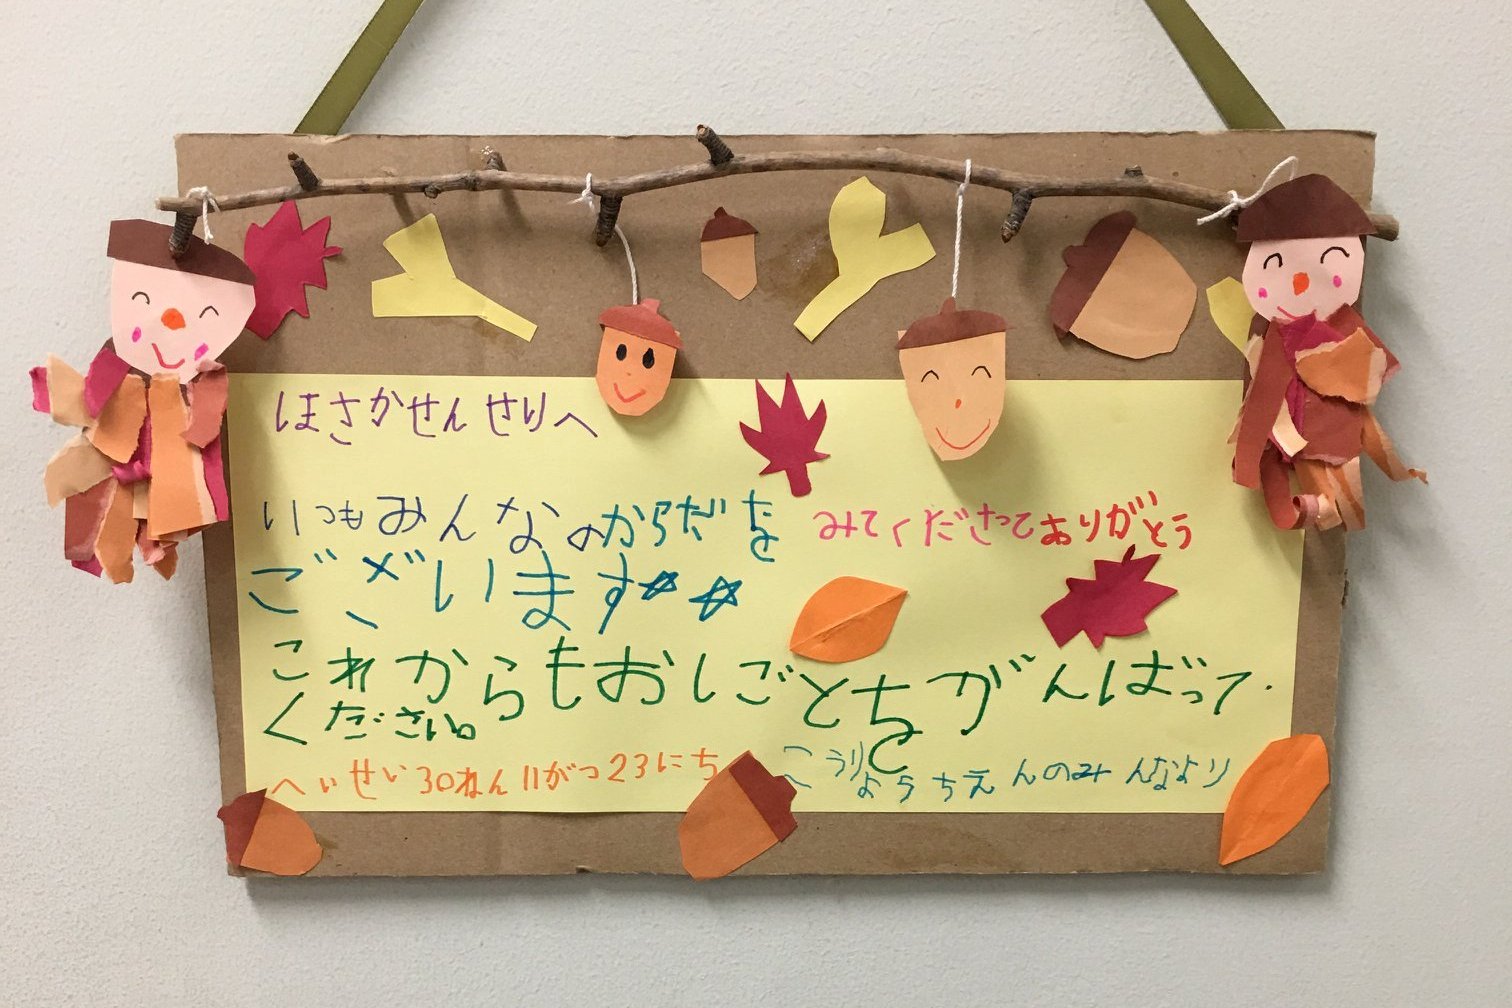 ほさかせんせいへ
いつもみんなのからだを みてくださってありがとう
ございます☆☆
これからもおしごとをがんばって
ください。
へいせい30ねん11がつ23にち
こうりようちえんのみんなより